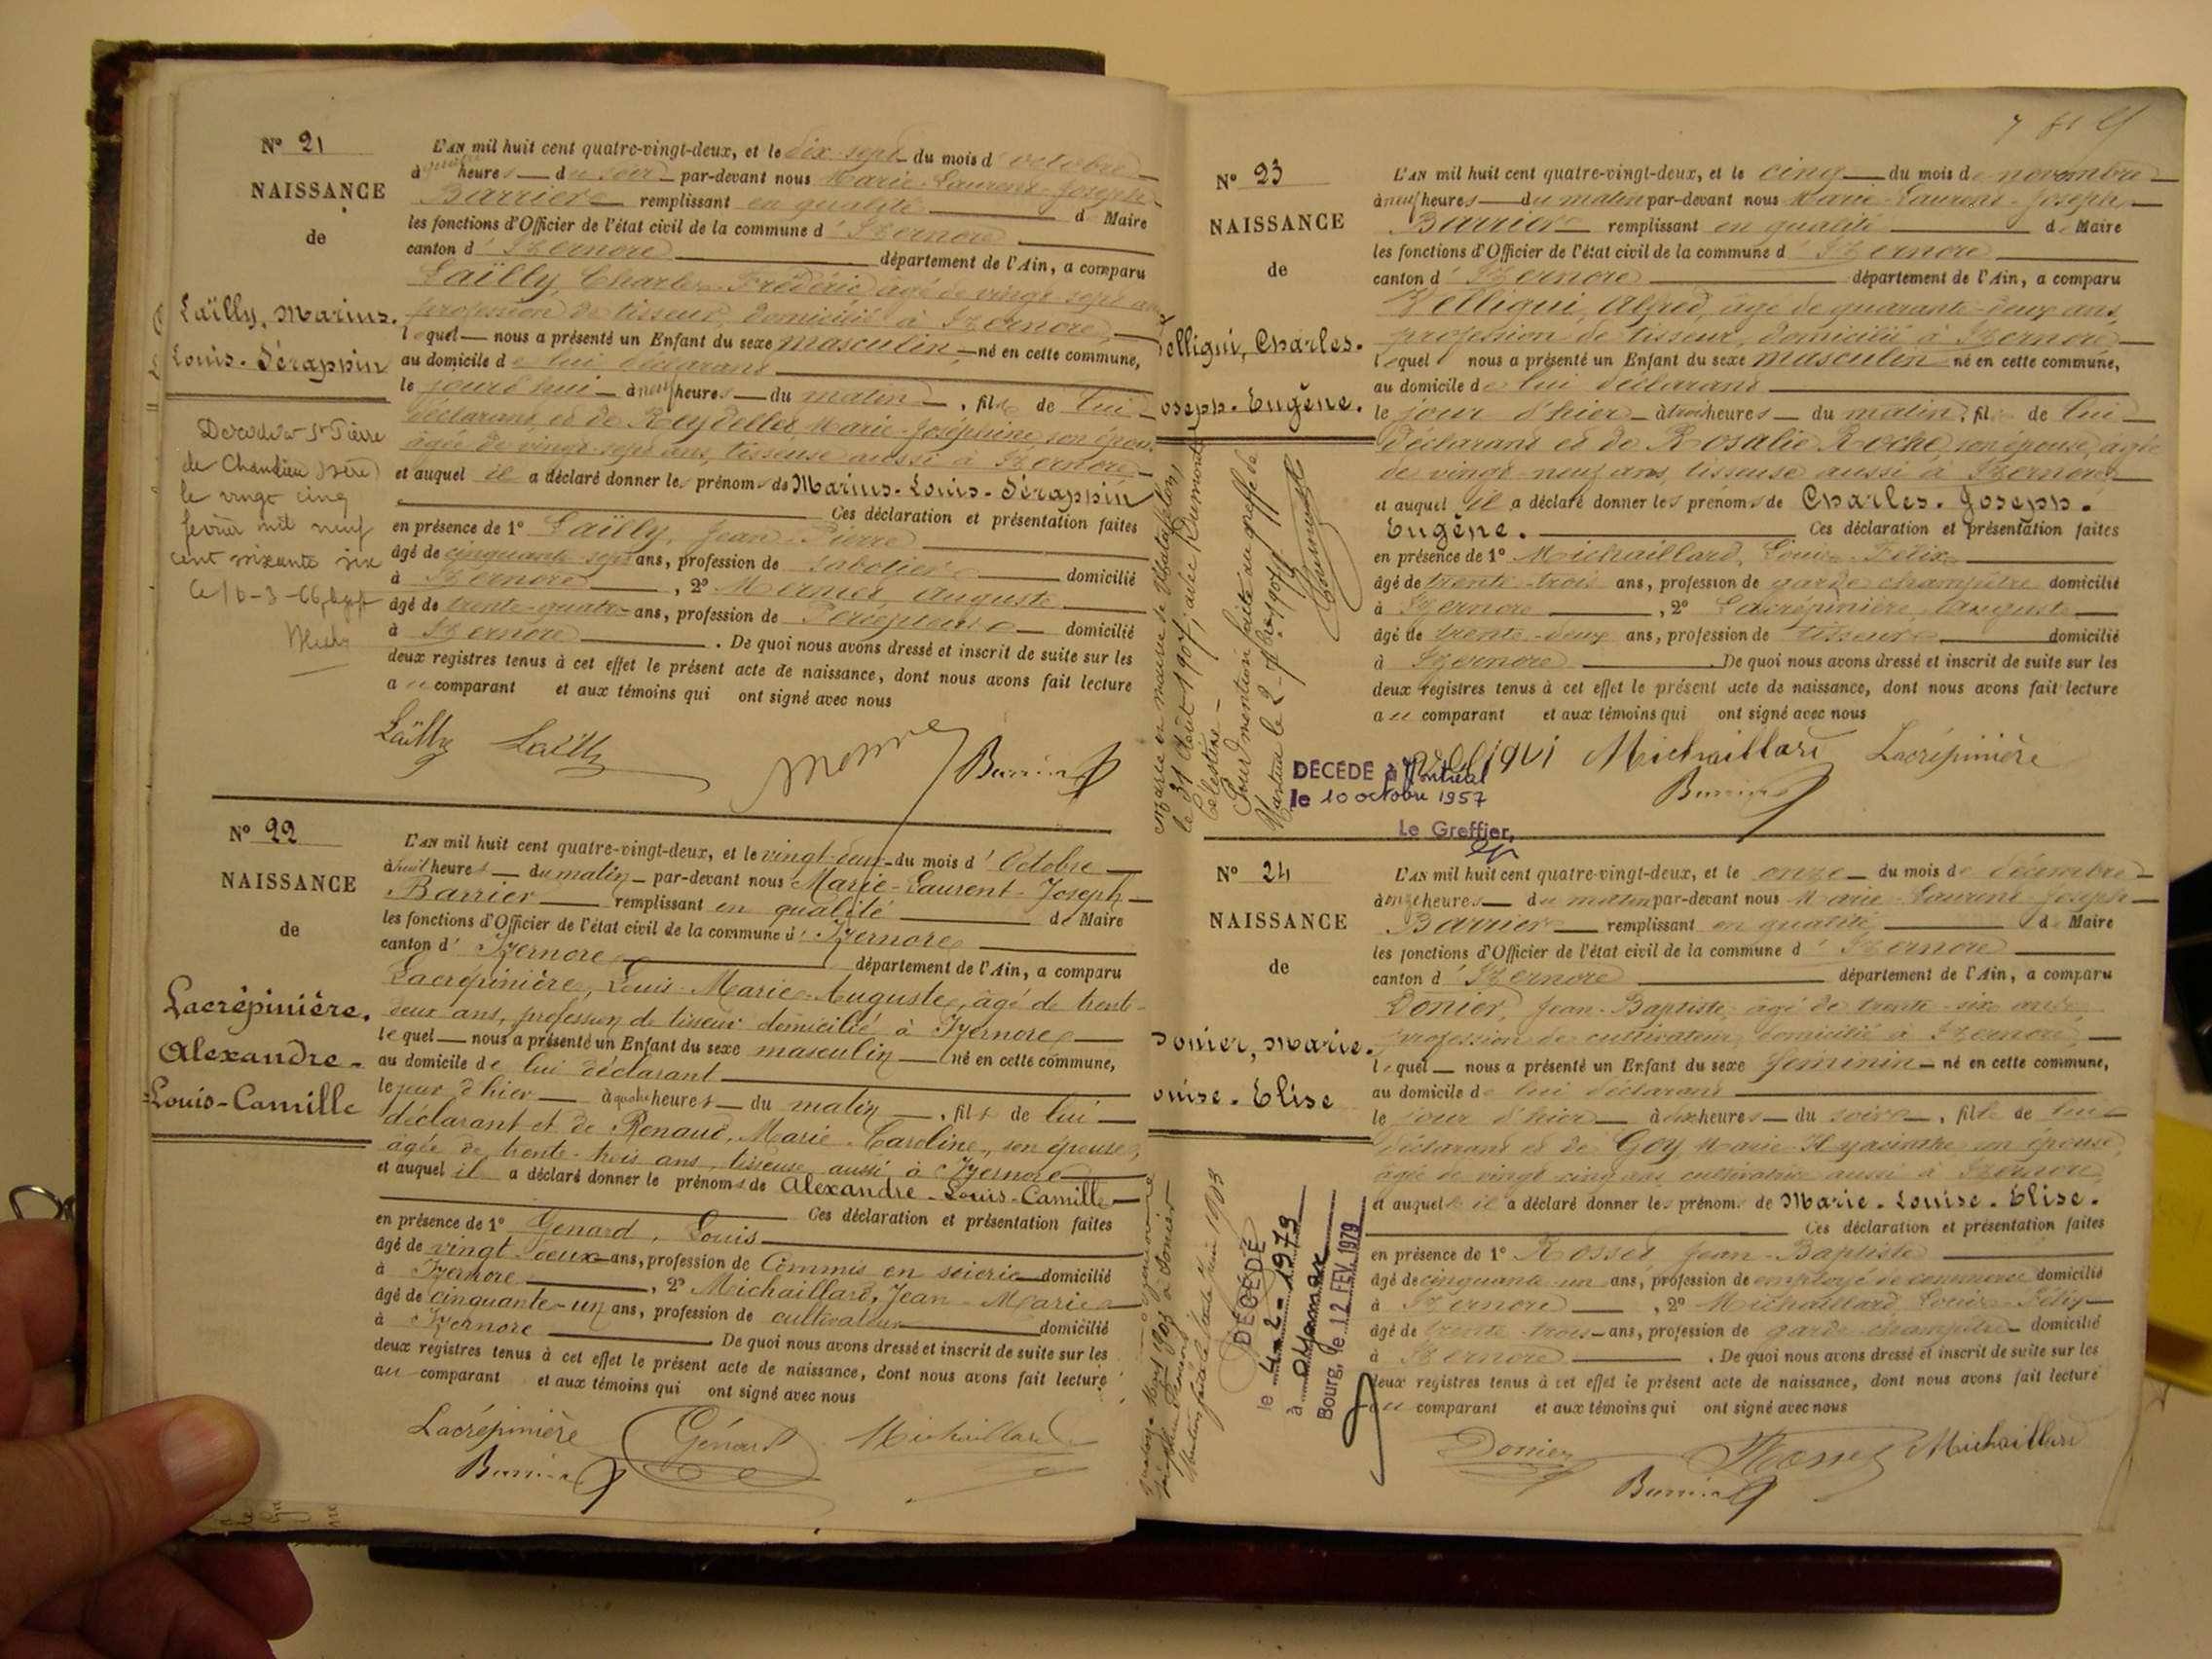 Nº 21
NAISSANCE
de
Laïlly, Marius-
Louis-Séraphin
Décédé à St Pierre
de Chandieu (Isère)
le vingt cinq
février mil neuf
cent soixante six
L'AN mil huit cent quatre-vingt-deux, et le dix-sept du mois d'octobre
à quatre heures du soir par-devant nous Marie-Laurent-Joseph
Barrier remplissant en qualité de Maire
les fonctions d'Officier de l'état civil de la commune d'Izernore
canton d'Izernore département de l'Ain, a comparu
Laïlly, Charles-Frédéric, âgé de vingt-sept ans
profession de tisseur, domicilié à Izernore,
lequel nous a présenté un Enfant du sexe masculin né en cette commune,
au domicile de lui déclarant
le jourd'hui à neuf heures du matin, fils de lui
déclarant et de Reydellet Marie-Joséphine son épouse
âgée de vingt-sept ans, tisseuse aussi à Izernore
et auquel il a déclaré donner les prénoms de Marius-Louis-Séraphin
Ces déclaration et présentation faites
en présence de 1º Laïlly, Jean-Pierre
âgé de cinquante-sept ans, profession de sabotier domicilié
à Izernore, 2º Mermet, Auguste
âgé de trente-quatre ans, profession de Percepteur domicilié
à Izernore. De quoi nous avons dressé et inscrit de suite sur les
deux registres tenus à cet effet le présent acte de naissance, dont nous avons fait lecture
au comparant et aux témoins qui ont signé avec nous
Laïlly Laïlly Barrier
Nº 22
NAISSANCE
de
Lacrépinière,
Alexandre-
Louis-Camille
L'AN mil huit cent quatre-vingt-deux, et le vingt-deux du mois d'Octobre
à huit heures du matin par-devant nous Marie-Laurent-Joseph
Barrier remplissant en qualité de Maire
les fonctions d'Officier de l'état civil de la commune d'Izernore
canton d'Izernore département de l'Ain, a comparu
Lacrépinière, Louis-Marie-Auguste, âgé de trente-
deux ans, profession de tisseur domicilié à Izernore
lequel nous a présenté un Enfant du sexe masculin né en cette commune,
au domicile de lui déclarant
le jour d'hier à quatre heures du matin, fils de lui
déclarant et de Renaud, Marie-Caroline, son épouse,
âgée de trente-trois ans, tisseuse aussi à Izernore
et auquel il a déclaré donner le prénoms de Alexandre-Louis-Camille
Ces déclaration et présentation faites
en présence de 1º Genard, Louis
âgé de vingt-deux ans, profession de Commis en scierie domicilié
à Izernore, 2º Michaillard, Jean-Marie
âgé de cinquante-un ans, profession de cultivateur
à Izernore domicilié
De quoi nous avons dressé et inscrit de suite sur les
deux registres tenus à cet effet le présent acte de naissance, dont nous avons fait lecture
au comparant et aux témoins qui ont signé avec nous
Lacrépinière Génard Michaillard
Barrier
Nº 23
NAISSANCE
de
elligui, Charles-
oseph-Eugène.
L'AN mil huit cent quatre-vingt-deux, et le cinq du mois de novembre
à neuf heures du matin par-devant nous Marie-Laurent-Joseph
Barrier remplissant en qualité de Maire
les fonctions d'Officier de l'état civil de la commune d'Izernore
canton d'Izernore département de l'Ain, a comparu
Alfred, âgé de quarante-deux ans,
profession de tisseur, domicilié à Izernore
lequel nous a présenté un Enfant du sexe masculin né en cette commune,
au domicile de lui déclarant
le jour d'hier à trois heures du matin, fils de lui
déclarant et de Rosalie Roche, son épouse, âgée
de vingt-neuf ans, tisseuse aussi à Izernore
et auquel il a déclaré donner les prénoms de Charles-Joseph-
Eugène. Ces déclaration et présentation faites
en présence de 1º Michaillard, Louis-Félix
âgé de trente-trois ans, profession de garde champêtre domicilié
à Izernore, 2º Lacrépinière, Auguste
âgé de trente-deux ans, profession de tisseur domicilié
à Izernore. De quoi nous avons dressé et inscrit de suite sur les
deux registres tenus à cet effet le présent acte de naissance, dont nous avons fait lecture
au comparant et aux témoins qui ont signé avec nous
Michaillard Lacrépinière
Barrier
le 31 Août 1907, avec Dumont
Célestine -
Pour mention faite au greffe de
DÉCÉDÉ à Montréal
le 10 octobre 1957
Le Greffier,
Nº 24
NAISSANCE
de
Donier, Marie-
ouise-Elise
L'AN mil huit cent quatre-vingt-deux, et le onze du mois de décembre
à onze heures du matin par-devant nous Marie-Laurent-Joseph
Barrier remplissant en qualité de Maire
les fonctions d'Officier de l'état civil de la commune d'Izernore
canton d'Izernore département de l'Ain, a comparu
Donier, Jean-Baptiste, âgé de trente-six ans,
profession de cultivateur, domicilié à Izernore,
lequel nous a présenté un Enfant du sexe féminin né en cette commune,
au domicile de lui déclarant
le jour d'hier à dix heures du soir, fille de lui
déclarant et de Goy Marie-Hyacinthe son épouse,
âgée de vingt-cinq ans, cultivatrice aussi à Izernore
et auquel il a déclaré donner les prénoms de Marie-Louise-Elise.
Ces déclaration et présentation faites
en présence de 1º Rosset, Jean-Baptiste
âgé de cinquante-un ans, profession de employé de commerce domicilié
à Izernore, 2º Michaillard Louis-Félix
âgé de trente-trois ans, profession de garde champêtre domicilié
à Izernore. De quoi nous avons dressé et inscrit de suite sur les
deux registres tenus à cet effet le présent acte de naissance, dont nous avons fait lecture
au comparant et aux témoins qui ont signé avec nous
Donier Rosset Michaillard
Barrier
DÉCÉDÉ
le 4-2-1979
à Oyonnax
Bourg, le 12 FEV. 1979